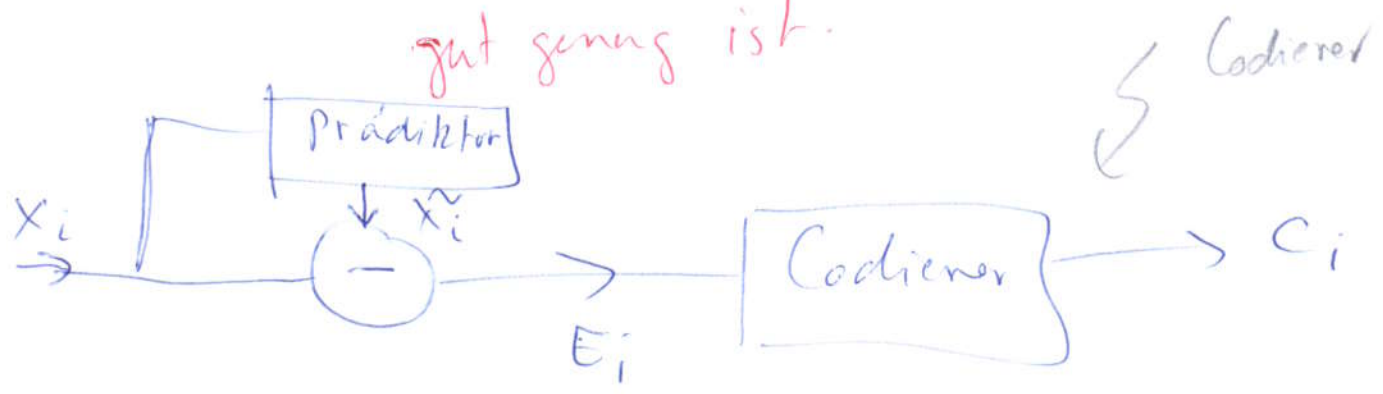 gut genug ist.
Codierer
Prädiktor
X_i
X̃_i
−
Codierer
C_i
E_i